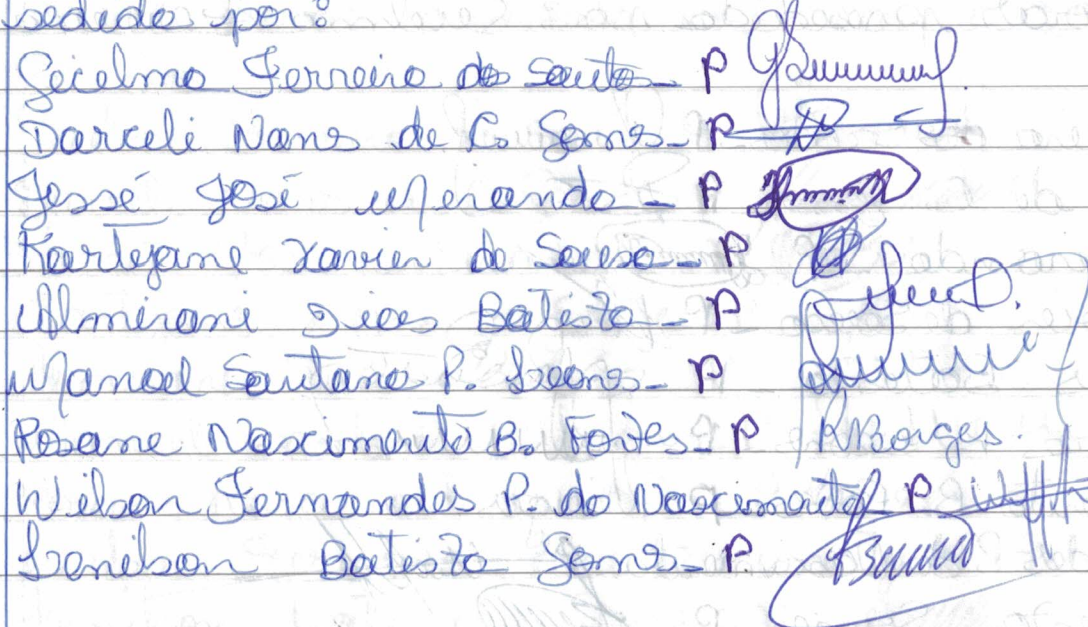 sedido por:
Gecelmo Ferreira do Santo - P
Darceli Nans de C. Gomes - P
Jessé José Meranda - P
Karlejane Xavier de Sousa - P
Almirani Dias Batista - P
Manoel Santana P. - P
Rosane Nascimento B. Fortes - P RBorges.
Wilson Fernandes P. do Nascimento P
Lenilson Batista Gomes - P.